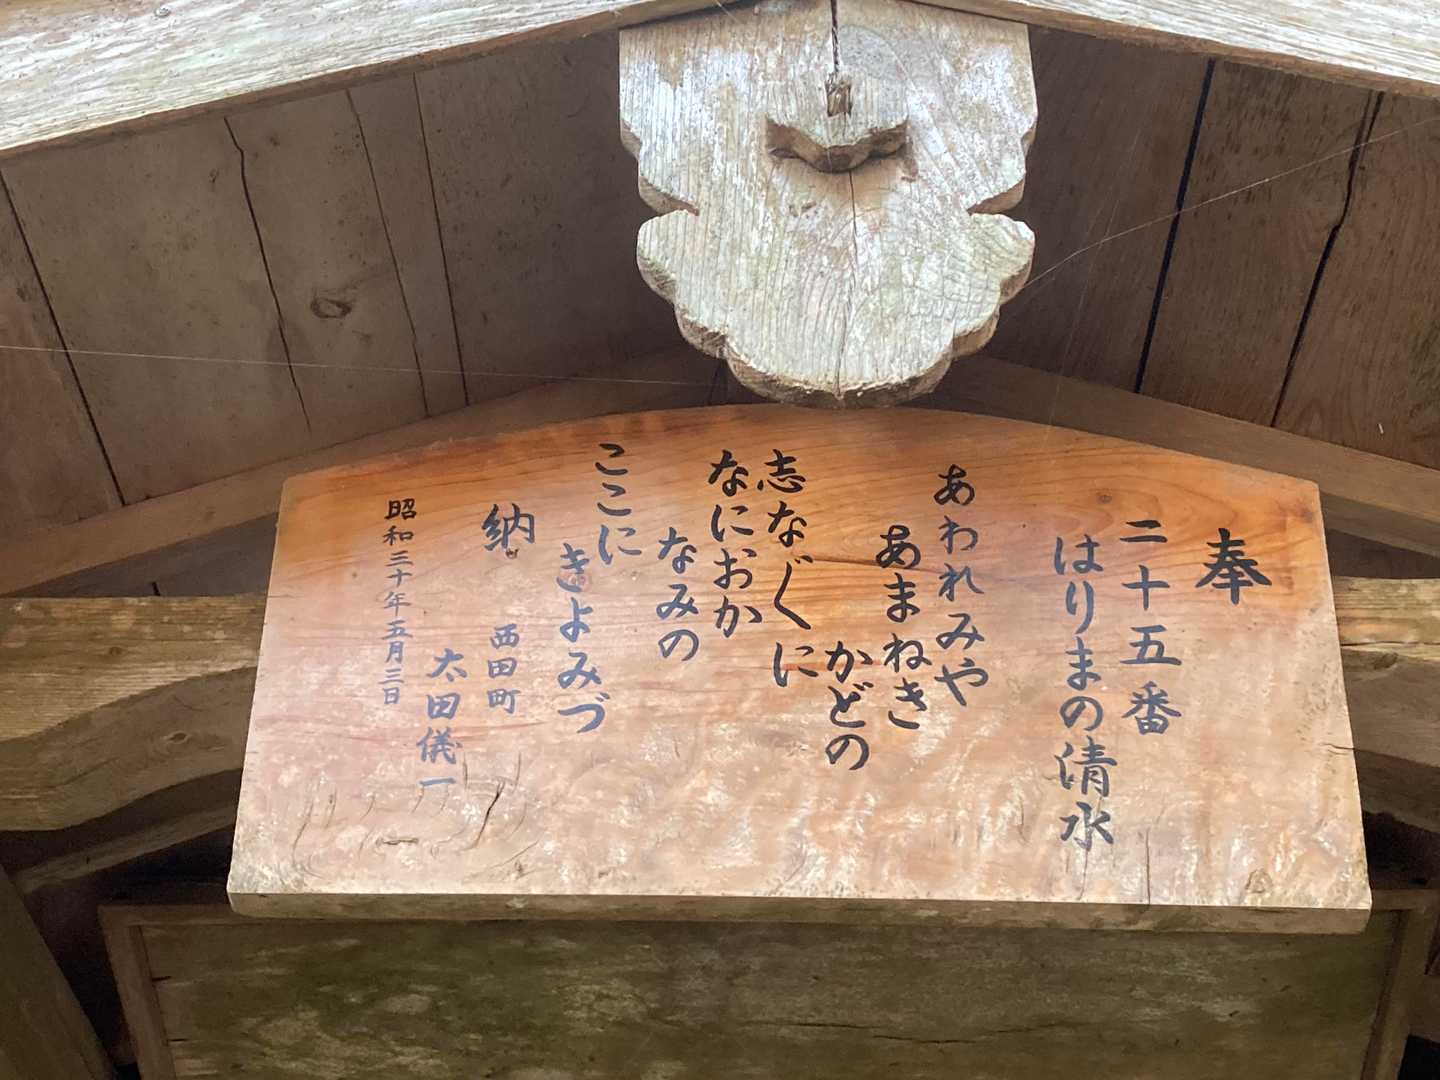 奉
二十五番
はりまの清水
あわれみや
あまねき
かどの
志なぐに
なにおか
なみの
ここに
きよみづ
納
西田町
太田儀一
昭和三十年五月三日